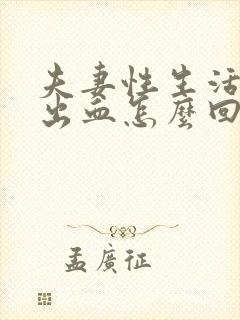 夫妻性生活
出血怎麼回
孟廣征